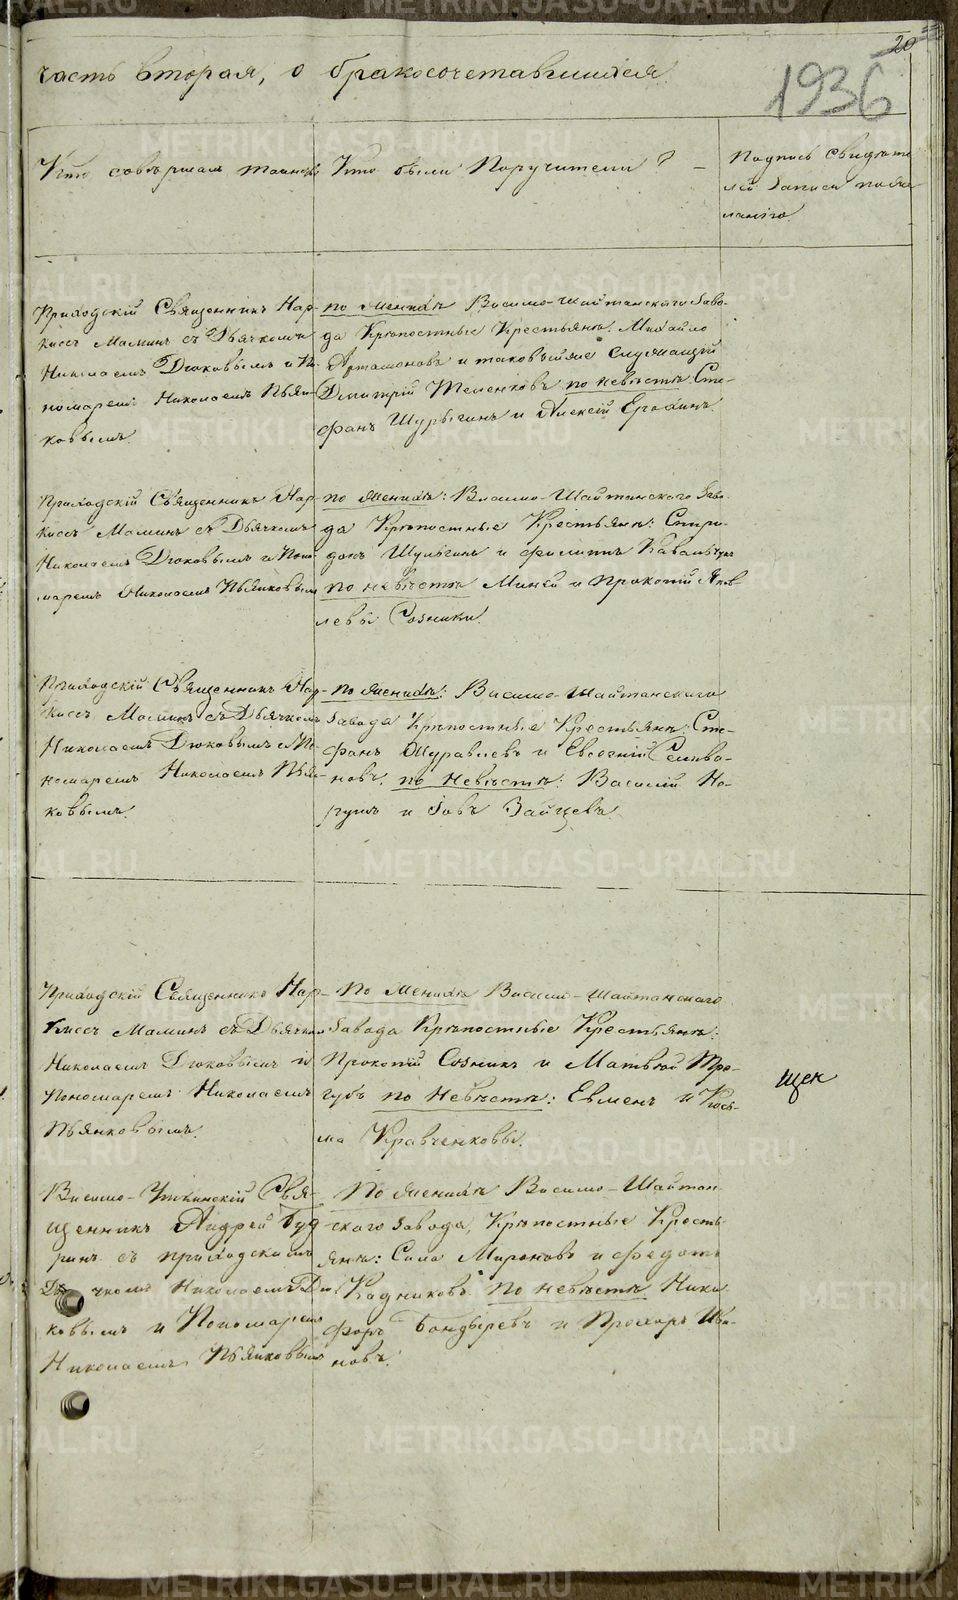 20
1936
часть вторая, о бракосочетавшихся
Кто совершалъ таинство
Кто были Поручители?
Подпись свидѣте
лей записи по же
ланію.
Приходскій Священникъ Нар-
кисъ Маминъ съ Дьячкомъ
Николаемъ Дюковымъ и По
номаремъ Николаемъ Пьян
ковымъ.
по женихѣ Висимо-Шайтанскаго Заво-
да Крѣпостные Крестьяне: Михайло
Артамоновъ и таковыйже служащій
Дмитрій Теменковъ по невѣстѣ Сте-
фанъ Шурыгинъ и Алексій Ерохинъ.
Приходскій Священникъ Нар-
кисъ Маминъ съ Дьячкомъ
Николаемъ Дюковымъ и Поно
маремъ Николаемъ Пьянковым
по женихѣ: Висимо-Шайтанскаго Заво-
да Крѣпостные Крестьяне: Спири-
донъ Шульгинъ и Филиппъ
по невѣстѣ Миней и Прокопій Яков-
левы Созники.
Приходскій Священникъ Нар-
кисъ Маминъ съ Дьячкомъ
Николаемъ Дюковымъ и По-
номаремъ Николаемъ Пьян-
ковымъ.
по женихѣ: Висимо-Шайтанскаго
Завода Крѣпостные Крестьяне: Сте-
фанъ Журавлевъ и Евгеній Селива-
новъ. по Невѣстѣ: Василій Но-
гумъ и Іовъ Зайцевъ.
Приходскій Священникъ Нар-
кисъ Маминъ съ Дьячком
Николаемъ Дюковымъ и
Пономаремъ Николаемъ
Пьянковымъ.
По Женихѣ Висимо-Шайтанскаго
Завода Крѣпостные Крестьяне:
Прокопій Созникъ и Матвѣй Тро-
губъ по Невѣстѣ: Евменъ и Козь-
ма Кравченковы.
щек
Висимо-Уткинскій Свя-
щенникъ Андрей Буд
ринъ съ приходскимъ
Дьячкомъ Николаемъ Дю
ковымъ и Пономаремъ
Николаемъ Пьянковымъ
По женихѣ Висимо-Шайтан-
скаго Завода, Крѣпостные Кресть
яне: Сила Мироновъ и Федотъ
Кадниковъ по невѣстѣ Ники
форъ Бондыревъ и Прохоръ Ива-
новъ.
METRIKI.GASO-URAL.RU